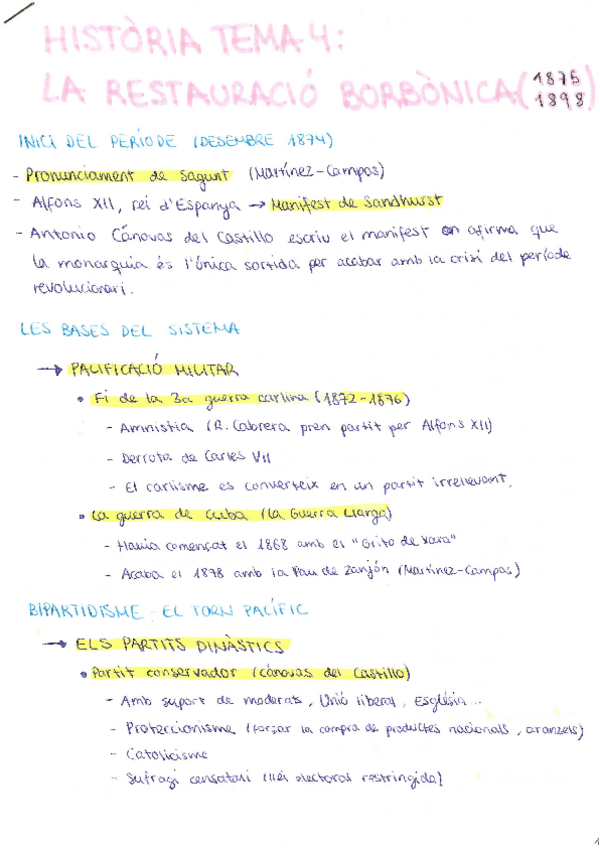 HISTÒRIA TEMA 4:
LA RESTAURACIÓ BORBÒNICA (1875
1898)
INICI DEL PERÍODE (DESEMBRE 1874)
- Pronunciament de Sagunt (Martínez-Campos)
- Alfons XII, rei d'Espanya → Manifest de Sandhurst
- Antonio Cánovas del Castillo escriu el manifest on afirma que
la monarquia és l'única sortida per acabar amb la crisi del període
revolucionari.
LES BASES DEL SISTEMA
→ PACIFICACIÓ MILITAR
• Fi de la 3a guerra carlina (1872-1876)
- Amnistia (R. Cabrera pren partit per Alfons XII)
- Derrota de Carles VII
- El carlisme es converteix en un partit irrellevant.
• La guerra de Cuba (la Guerra Llarga)
- Havia començat el 1868 amb el "Grito de Yara"
- Acaba el 1878 amb la Pau de Zanjón (Martínez-Campos)
BIPARTIDISME: EL TORN PACÍFIC
→ ELS PARTITS DINÀSTICS
• Partit conservador (Cánovas del Castillo)
- Amb suport de moderats, Unió liberal, Església...
- Proteccionisme (forçar la compra de productes nacionals, aranzels)
- Catolicisme
- Sufragi censatari (llei electoral restringida)
1